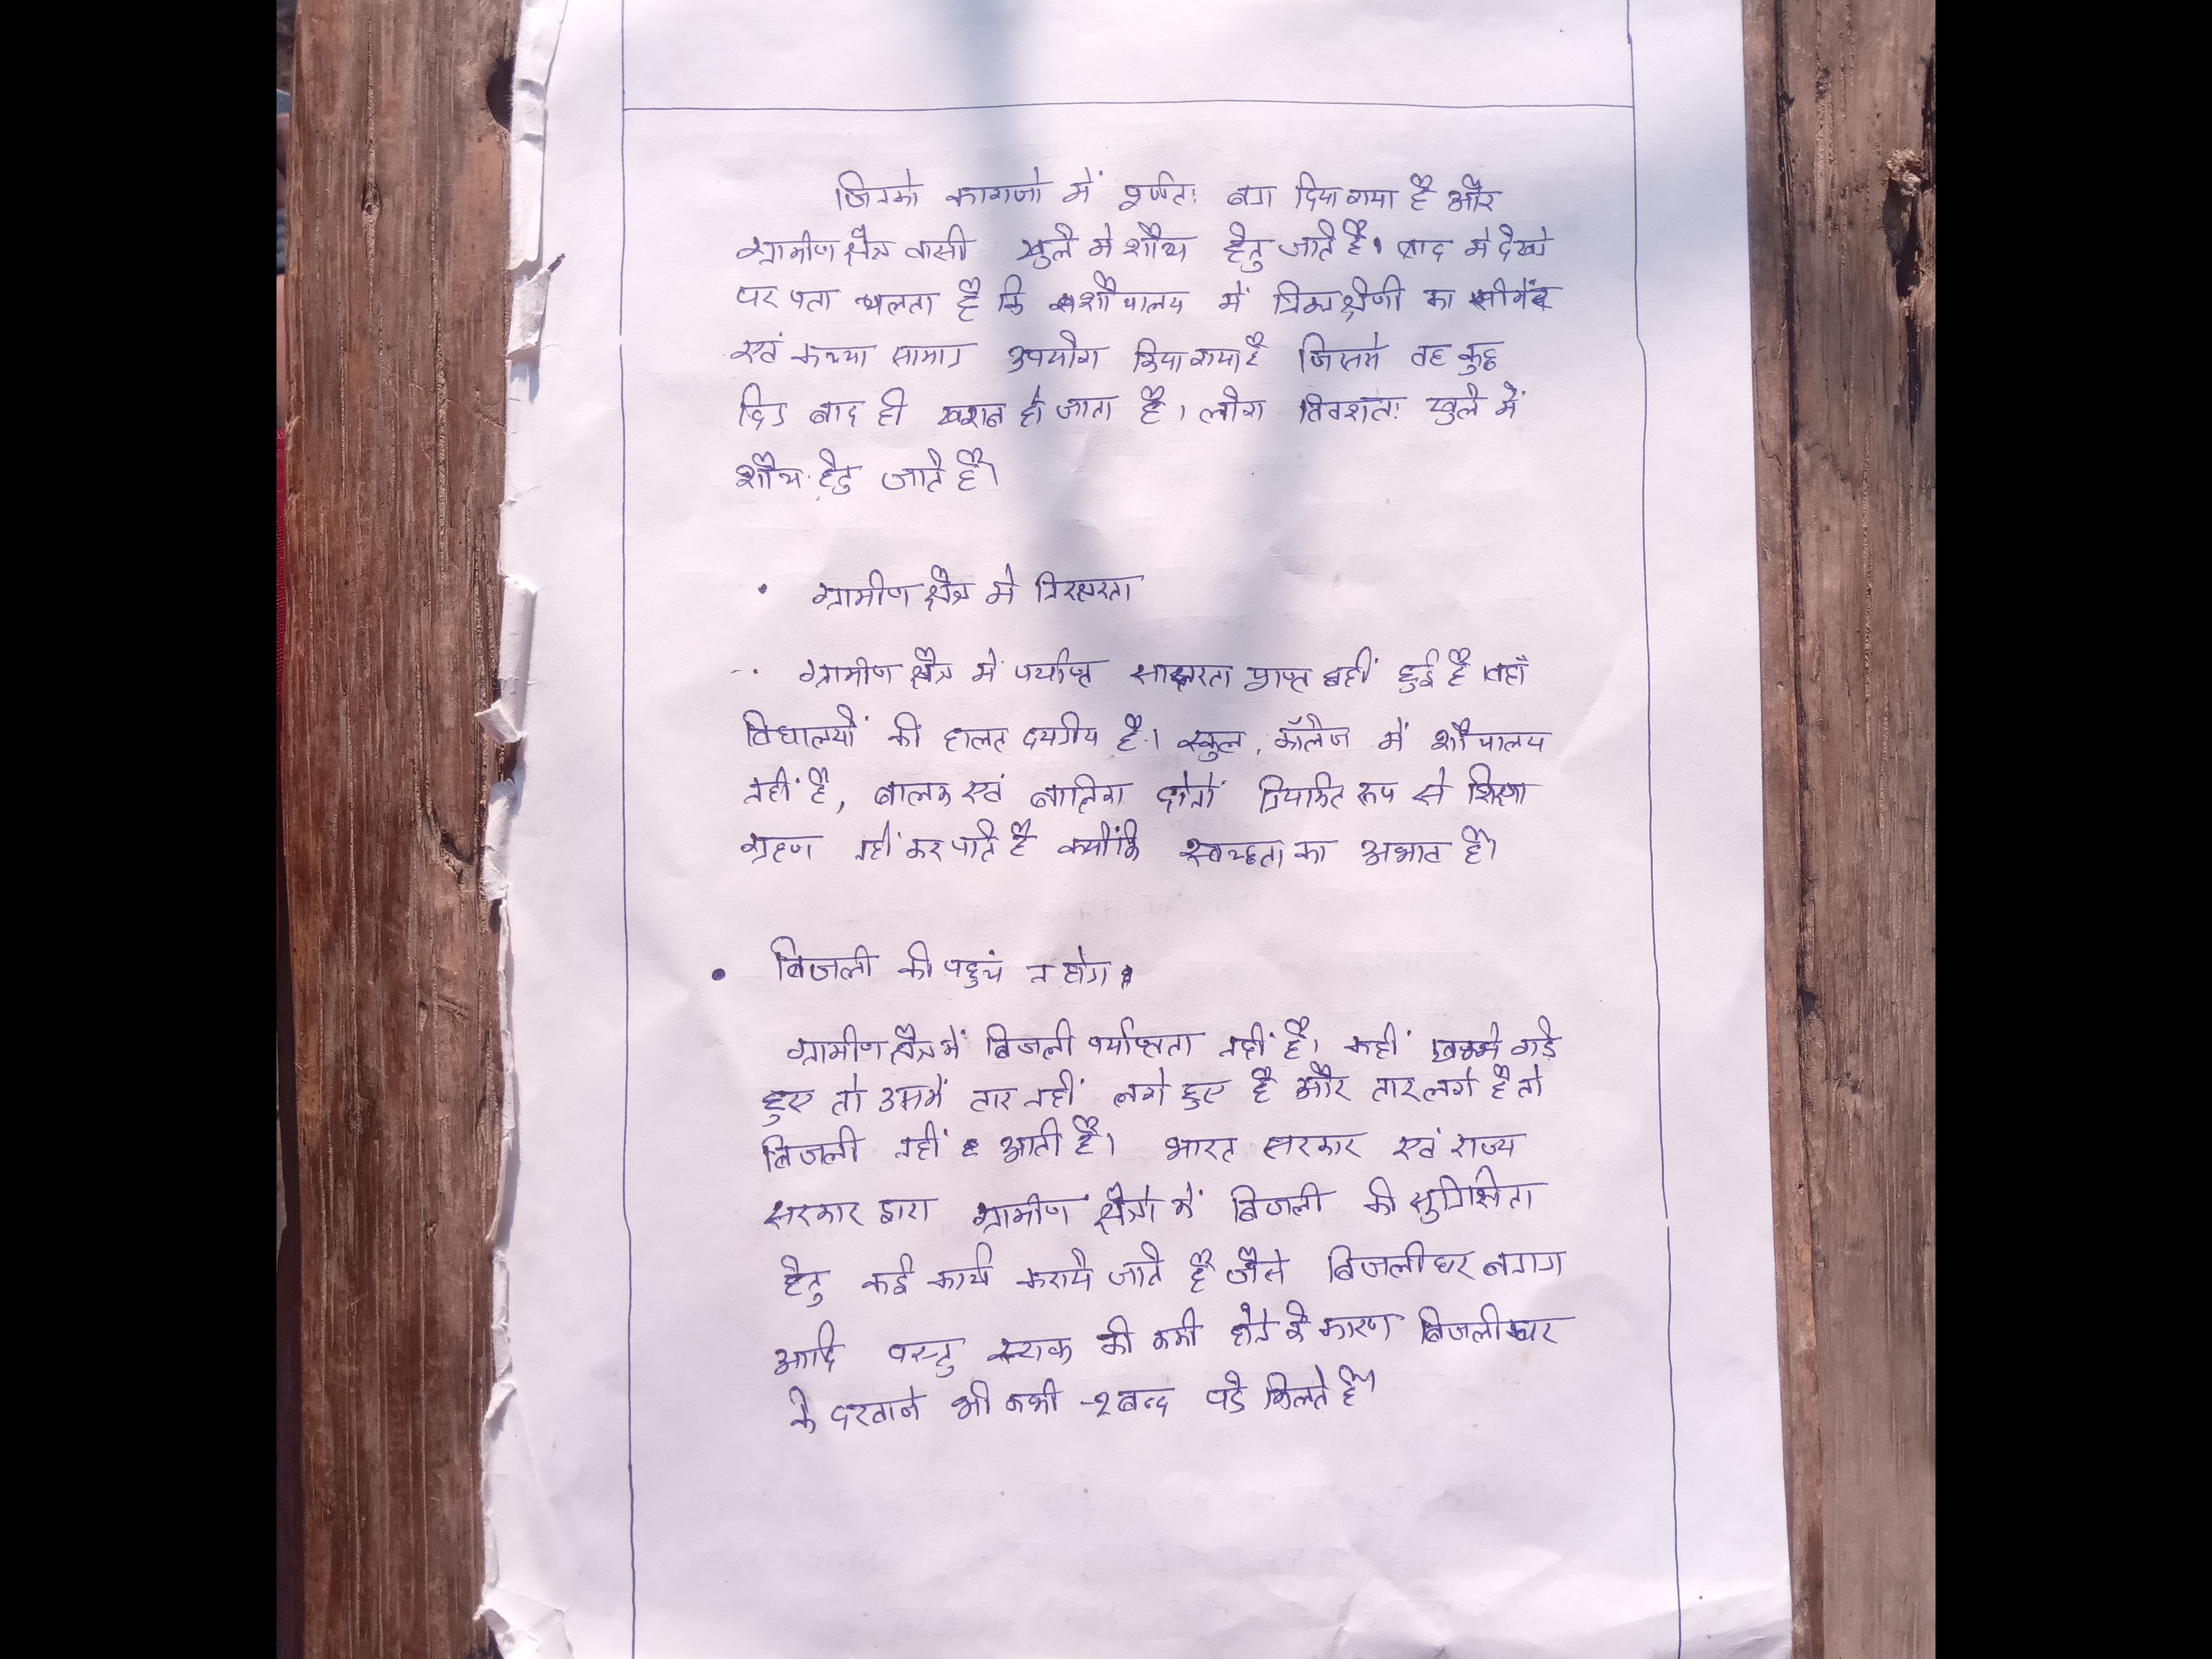 जिनको कागजो में पूर्णतः बना दिया गया है और
ग्रामीण क्षेत्र वासी खुले मे शौच हेतु जाते है। बाद मे देखने
पर पता चलता है कि शौचालय में निम्न श्रेणी का सीमेंट
एवं कच्चा सामान उपयोग किया गया है जिससे वह कुछ
दिन बाद ही खराब हो जाता है। लोग विवशतः खुले में
शौच हेतु जाते है।
• ग्रामीण क्षेत्र मे निरक्षरता
ग्रामीण क्षेत्र में पर्याप्त साक्षरता प्राप्त नहीं हुई है। वहाँ
विधालयों की हालत दयनीय है। स्कुल, कॉलेज में शौचालय
नहीं है, बालक एवं बालिका दोनों नियमित रूप से शिक्षा
ग्रहण नहीं कर पाते है क्योंकि स्वच्छता का अभाव है।
• बिजली की पहुचं न होना।
ग्रामीण क्षेत्र में बिजली पर्याप्तता नहीं है। कहीं खम्भे गडे
हुए तो उसमें तार नहीं लगे हुए है और तार लगे है तो
बिजली नहीं आती है। भारत सरकार एवं राज्य
सरकार द्वारा ग्रामीण क्षेत्रो में बिजली की सुनिश्चिता
हेतु कई कार्य कराये जाते है जैसे बिजली घर बनाना
आदि परन्तु स्टाफ की कमी होने के कारण बिजली घर
के दरवाजे भी कभी -२ बन्द पडे मिलते है।